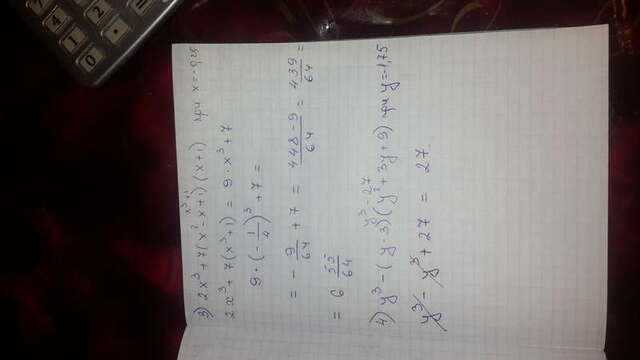 3) 2x³ + 7(x² - x + 1)(x + 1) при x = -0,25
x³+1
2x³ + 7(x³ + 1) = 9 · x³ + 7
9 · (-1/4)³ + 7 =
= - 9/64 + 7 = (448 - 9)/64 = 439/64 =
= 6 55/64
y³ - 27
4) y³ - (y - 3)(y² + 3y + 9) при y = -1,75
y³ - y³ + 27 = 27
4
1
2
0
.